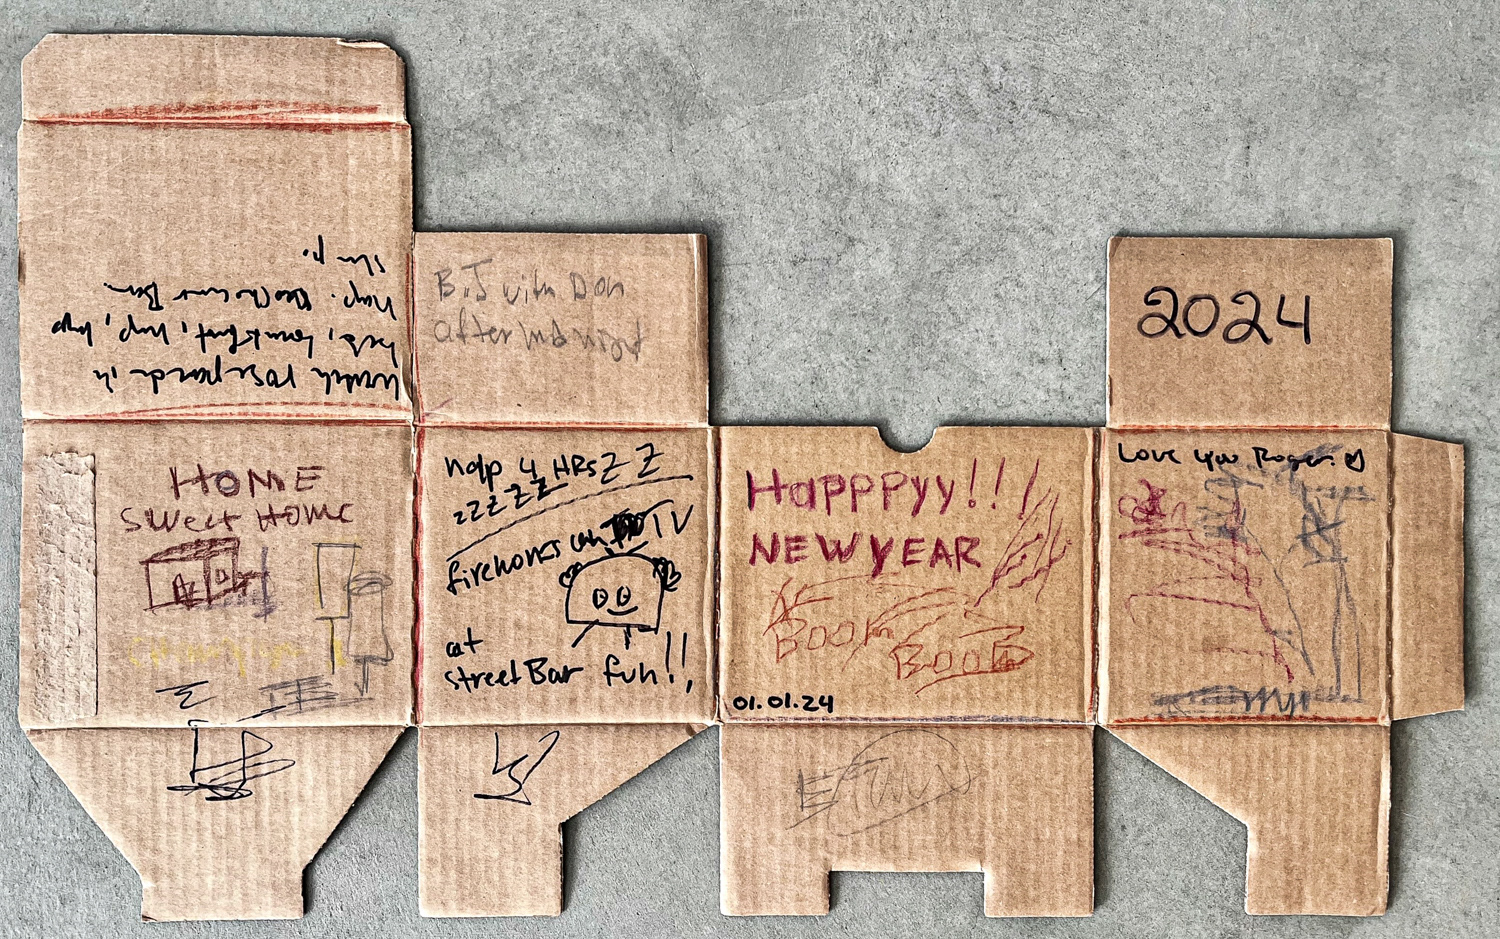 watch rose parade in
bed, breakfast, nap, nap
nap.
B.J with Don
after midnight
2024
HOME
SWEET HOME
nap 4 HRS Z Z
z z Z Z Z
fireworks on TV
at
street Bar fun!!,
HaPPPyy!!!
NEW YEAR
BOOM
BOOM
01.01.24
Love you Roger.